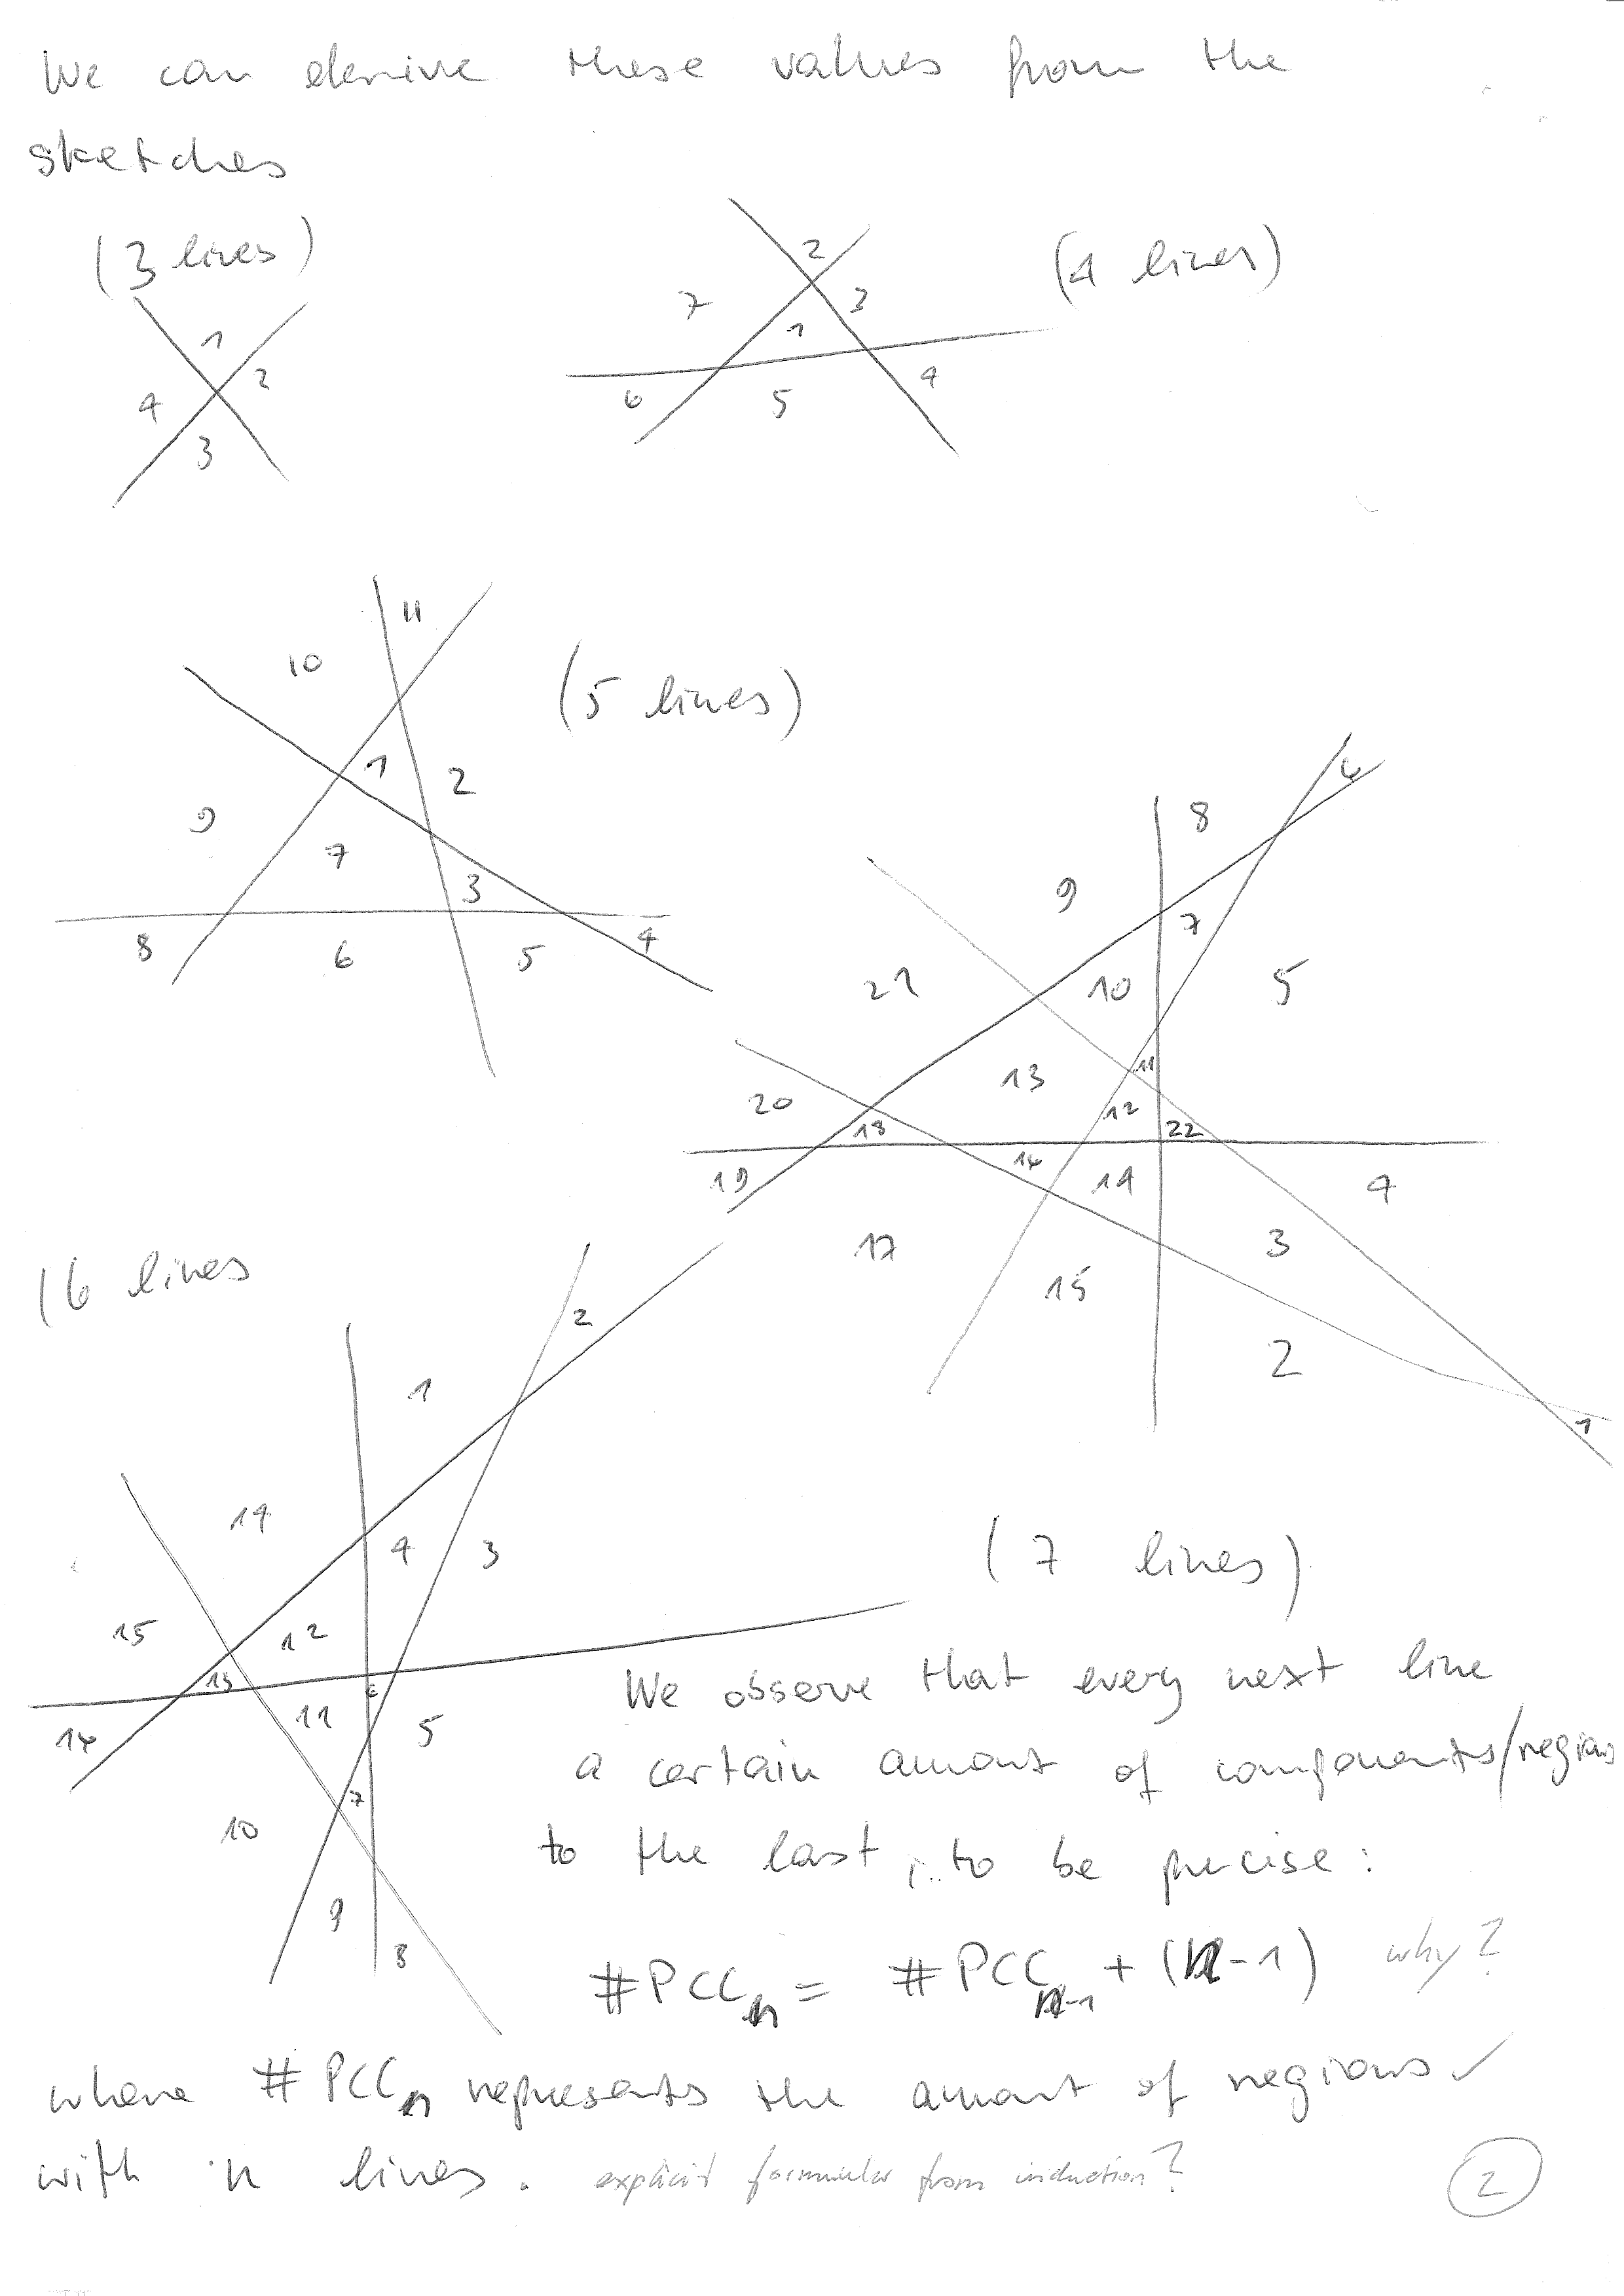 We can derive these values from the
sketches
(3 lines)
(4 lines)
1
2
3
4
2
7
3
1
4
6
5
(5 lines)
11
10
1
2
9
7
3
8
6
5
4
6
8
9
7
21
10
5
13
11
20
12
18
22
19
16
14
4
17
3
15
2
1
(6 lines
2
1
14
4
3
15
12
13
6
16
11
5
7
10
9
8
(7 lines)
We observe that every next line
a certain amount of components/regions
to the last, to be precise:
#PCC_n = #PCC_n-1 + (n-1) why?
where #PCC_n represents the amount of regions ✓
with n lines. explicit formular from induction? 2